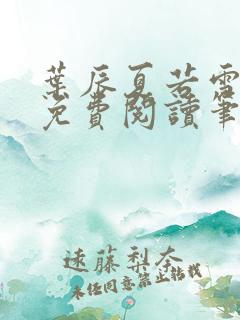 葉辰夏若雪
免費閱讀筆
遠藤梨奈
未任同意禁止轉載